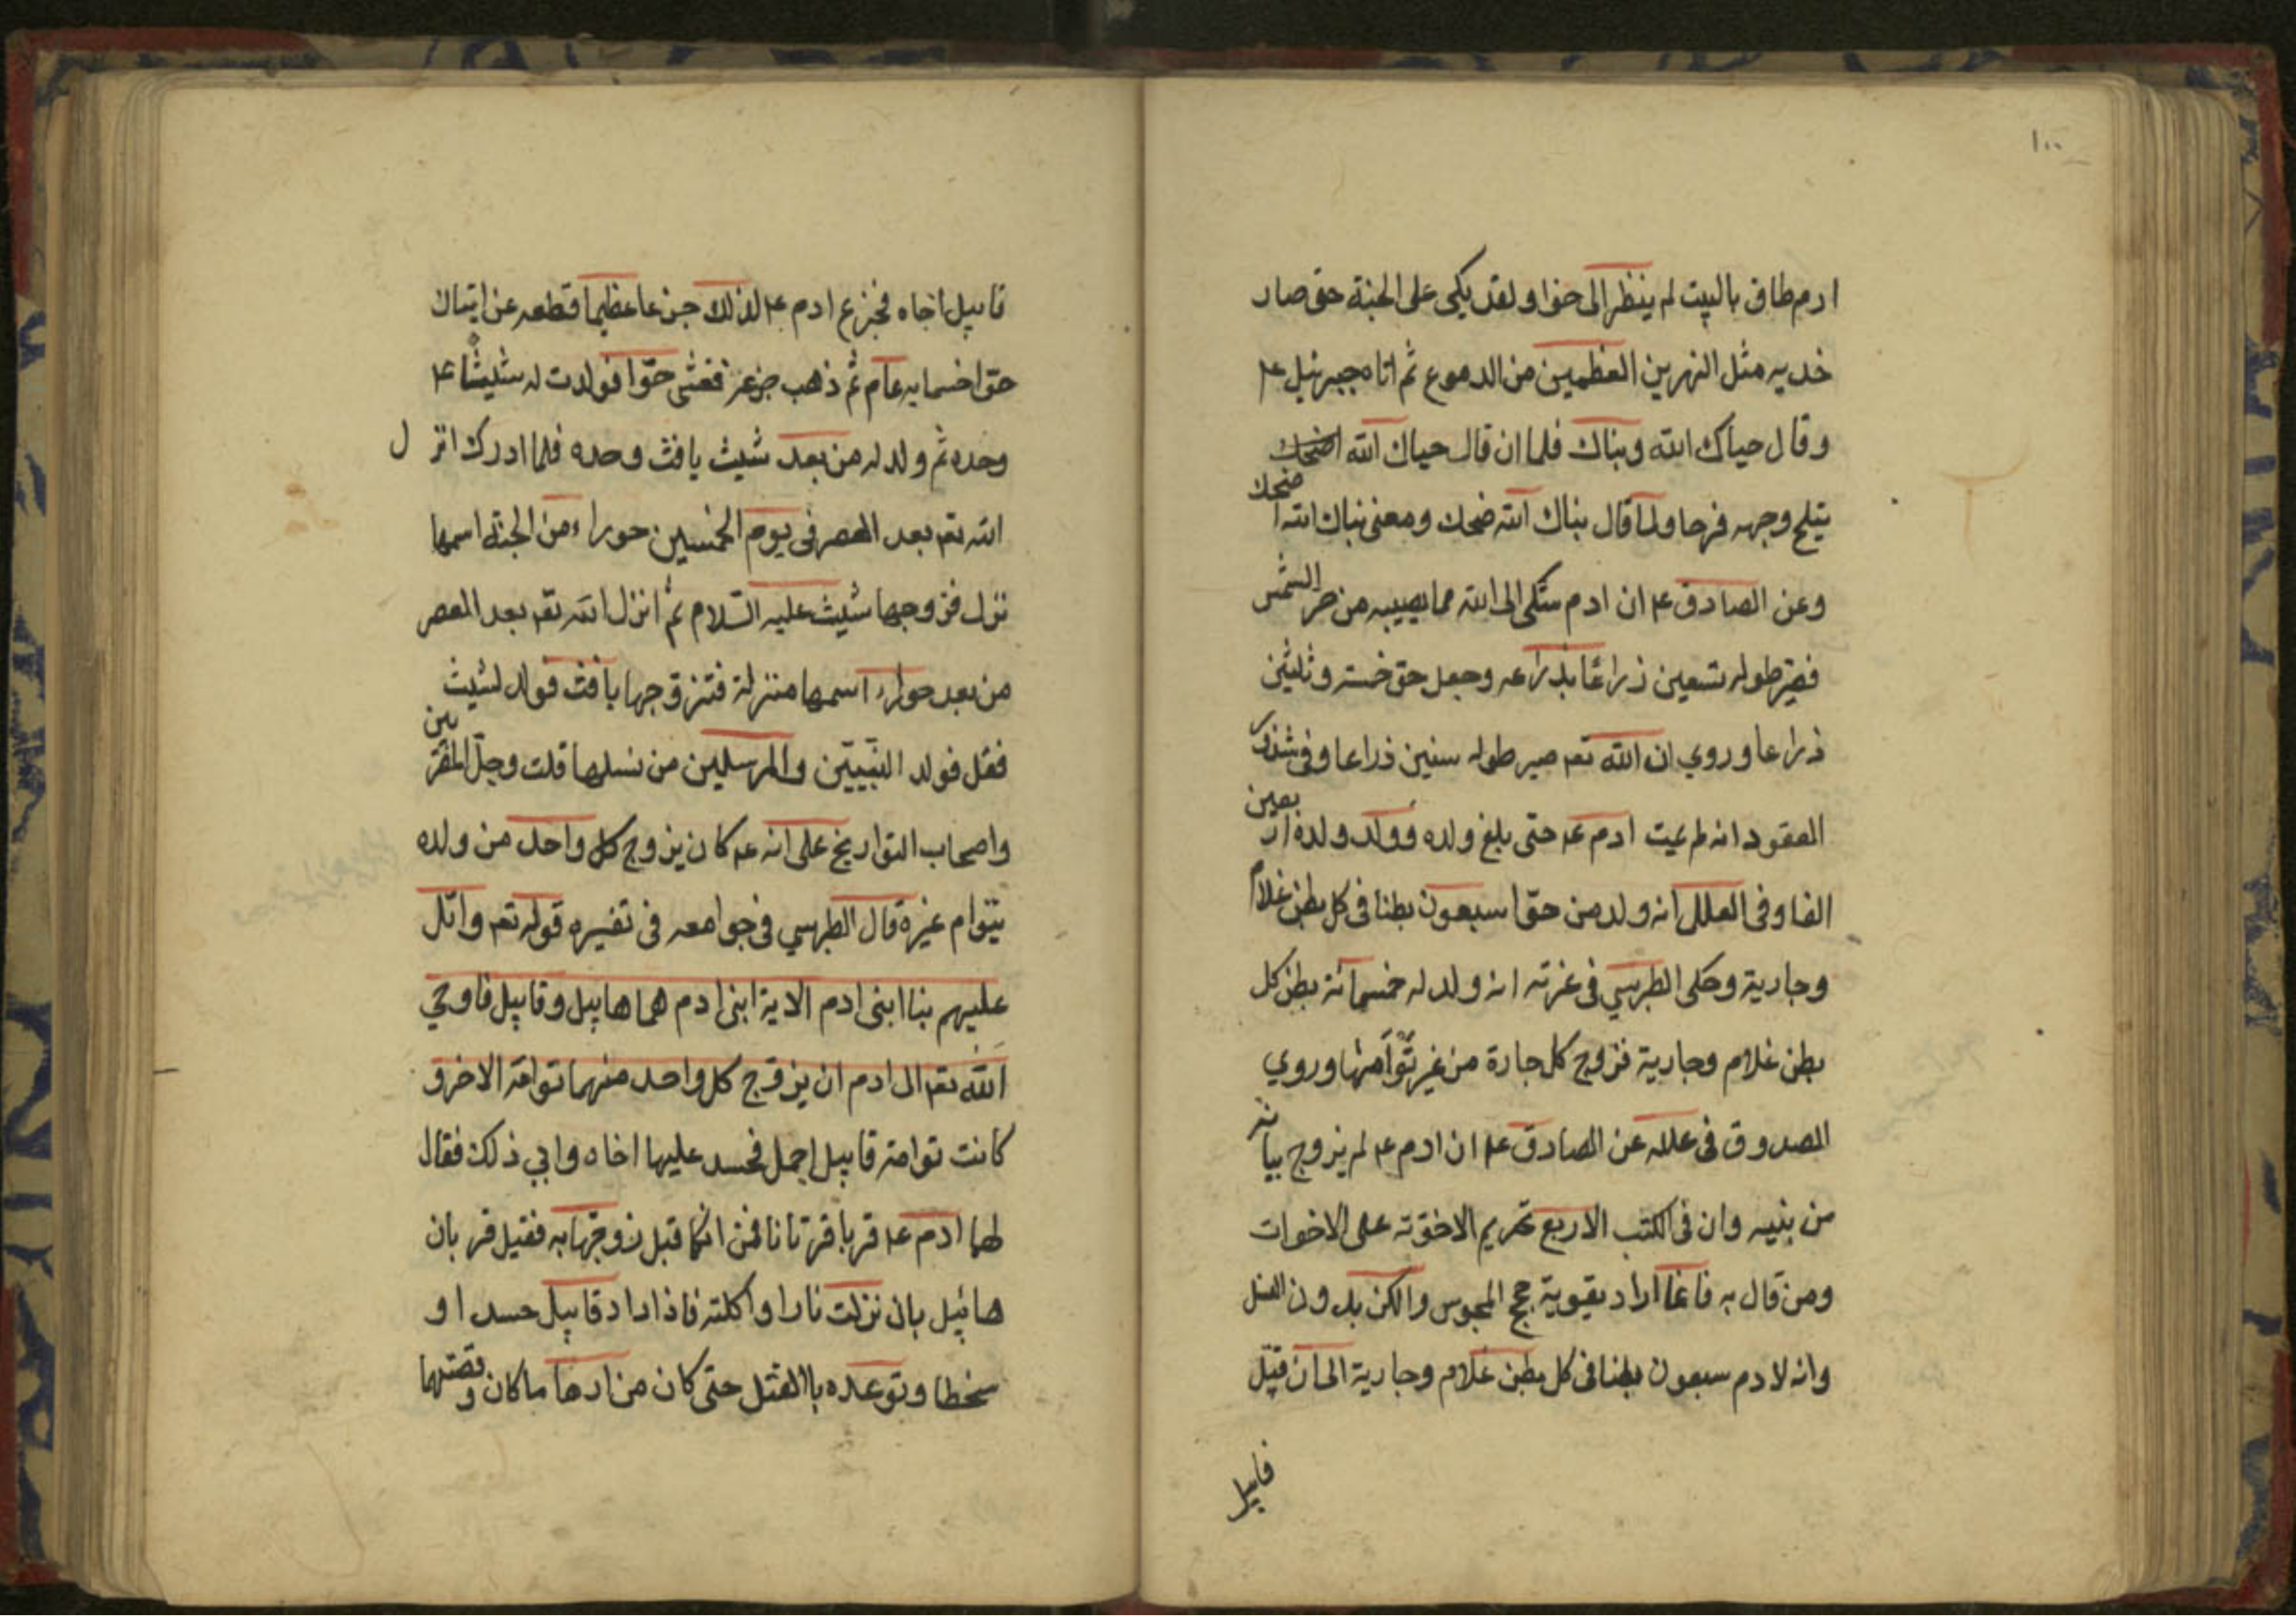 ١٠٠
ادم طاف بالبيت لم ينظر الى حوا ولقد بكى على الجنة حتى صار
خديه مثل النهرين العظمين من الدموع ثم اتاه جبرئيل ع
وقال حياك الله وبياك فلما ان قال حياك الله
يتبلج وجهه فرحا ولما قال بياك الله ضحك ومعنى بياك الله اضحك
وعن الصادق ع ان ادم شكى الى الله مما يصيبه من حر الشمس
فصير طوله سبعين ذراعا بذراعه وجعل حوا خمسة وثلثين
ذراعا وروي ان الله تع صير طوله ستين ذراعا وفي شذور
العقود انه لم يمت ادم ع حتى بلغ ولده وولد ولده اربعين
الفا وفي العلل انه ولد من حوا سبعون بطنا في كل بطن غلام
وجارية وحكى الطبرسي في غرته انه ولد له خمسمائة بطن كل
بطن غلام وجارية فزوج كل جارة من غير توآمها وروي
الصدوق في علله عن الصادق ع ان ادم ع لم يزوج بناته
من بنيه وان في الكتب الاربع تحريم الاخوة على الاخوات
ومن قال به فانما اراد بقوية حجج المجوس والكن بدون
وانه لادم سبعون بطنا في كل بطن غلام وجارية الى ان قتل
قابيل
قابيل اخاه فجزع ادم ع لذلك جزعا عظيما قطعه عن اتيان
حوا خسمايه عام ثم ذهب جزعه فغشى حوا فولدت له شيثا ع
وحده ثم ولد له من بعد شيث يافث وحده فلما ادركا انزل
الله تع بعد العصر في يوم الخميس حوراء من الجنة اسمها
نزل فزوجها شيث عليه السلام ثم انزل الله تع بعد العصر
من بعد حوراء اسمها منزلة فتزوجها يافث فولد لشيث
فولد النبيين والمرسلين من نسلها قلت وجل المفسرين
واصحاب التواريخ على انه ع كان يزوج كل واحد من ولده
بتوام غيره قال الطبرسي في جوامعه في تفسيره قوله تع واتل
عليهم بنا ابنى ادم الاية ابنى ادم هما هابيل وقابيل فاوحي
الله تع الى ادم ان يزوج كل واحد منهما توامة الاخر و
كانت توامة قابيل اجمل فحسد عليها اخاه وابي ذلك فقال
لهما ادم ع قربا قربانا فمن ايكما قبل زوجها به فقبل قربان
هابيل بان نزلت نارا واكلته فاذا داد قابيل حسدا و
سخطا وتوعده باالقتل حتى كان من امرها ما كان وقصتهما